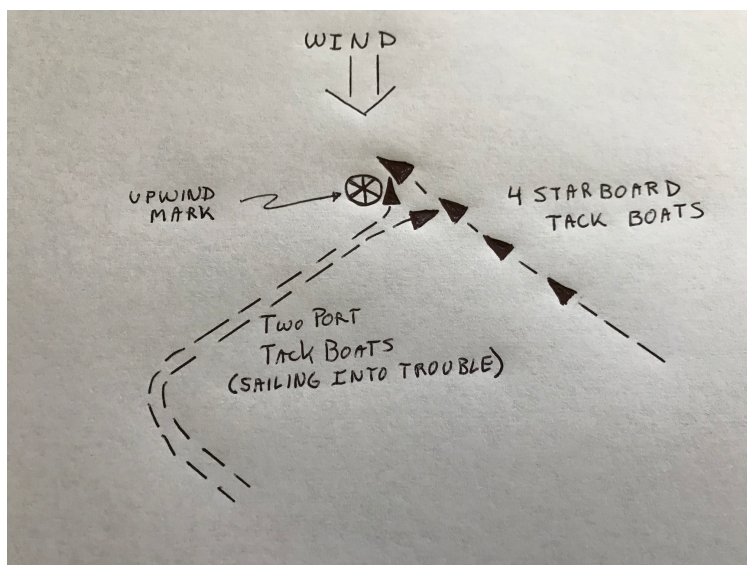 WIND
UPWIND
MARK
4 STARBOARD
TACK BOATS
TWO PORT
TACK BOATS
(SAILING INTO TROUBLE)